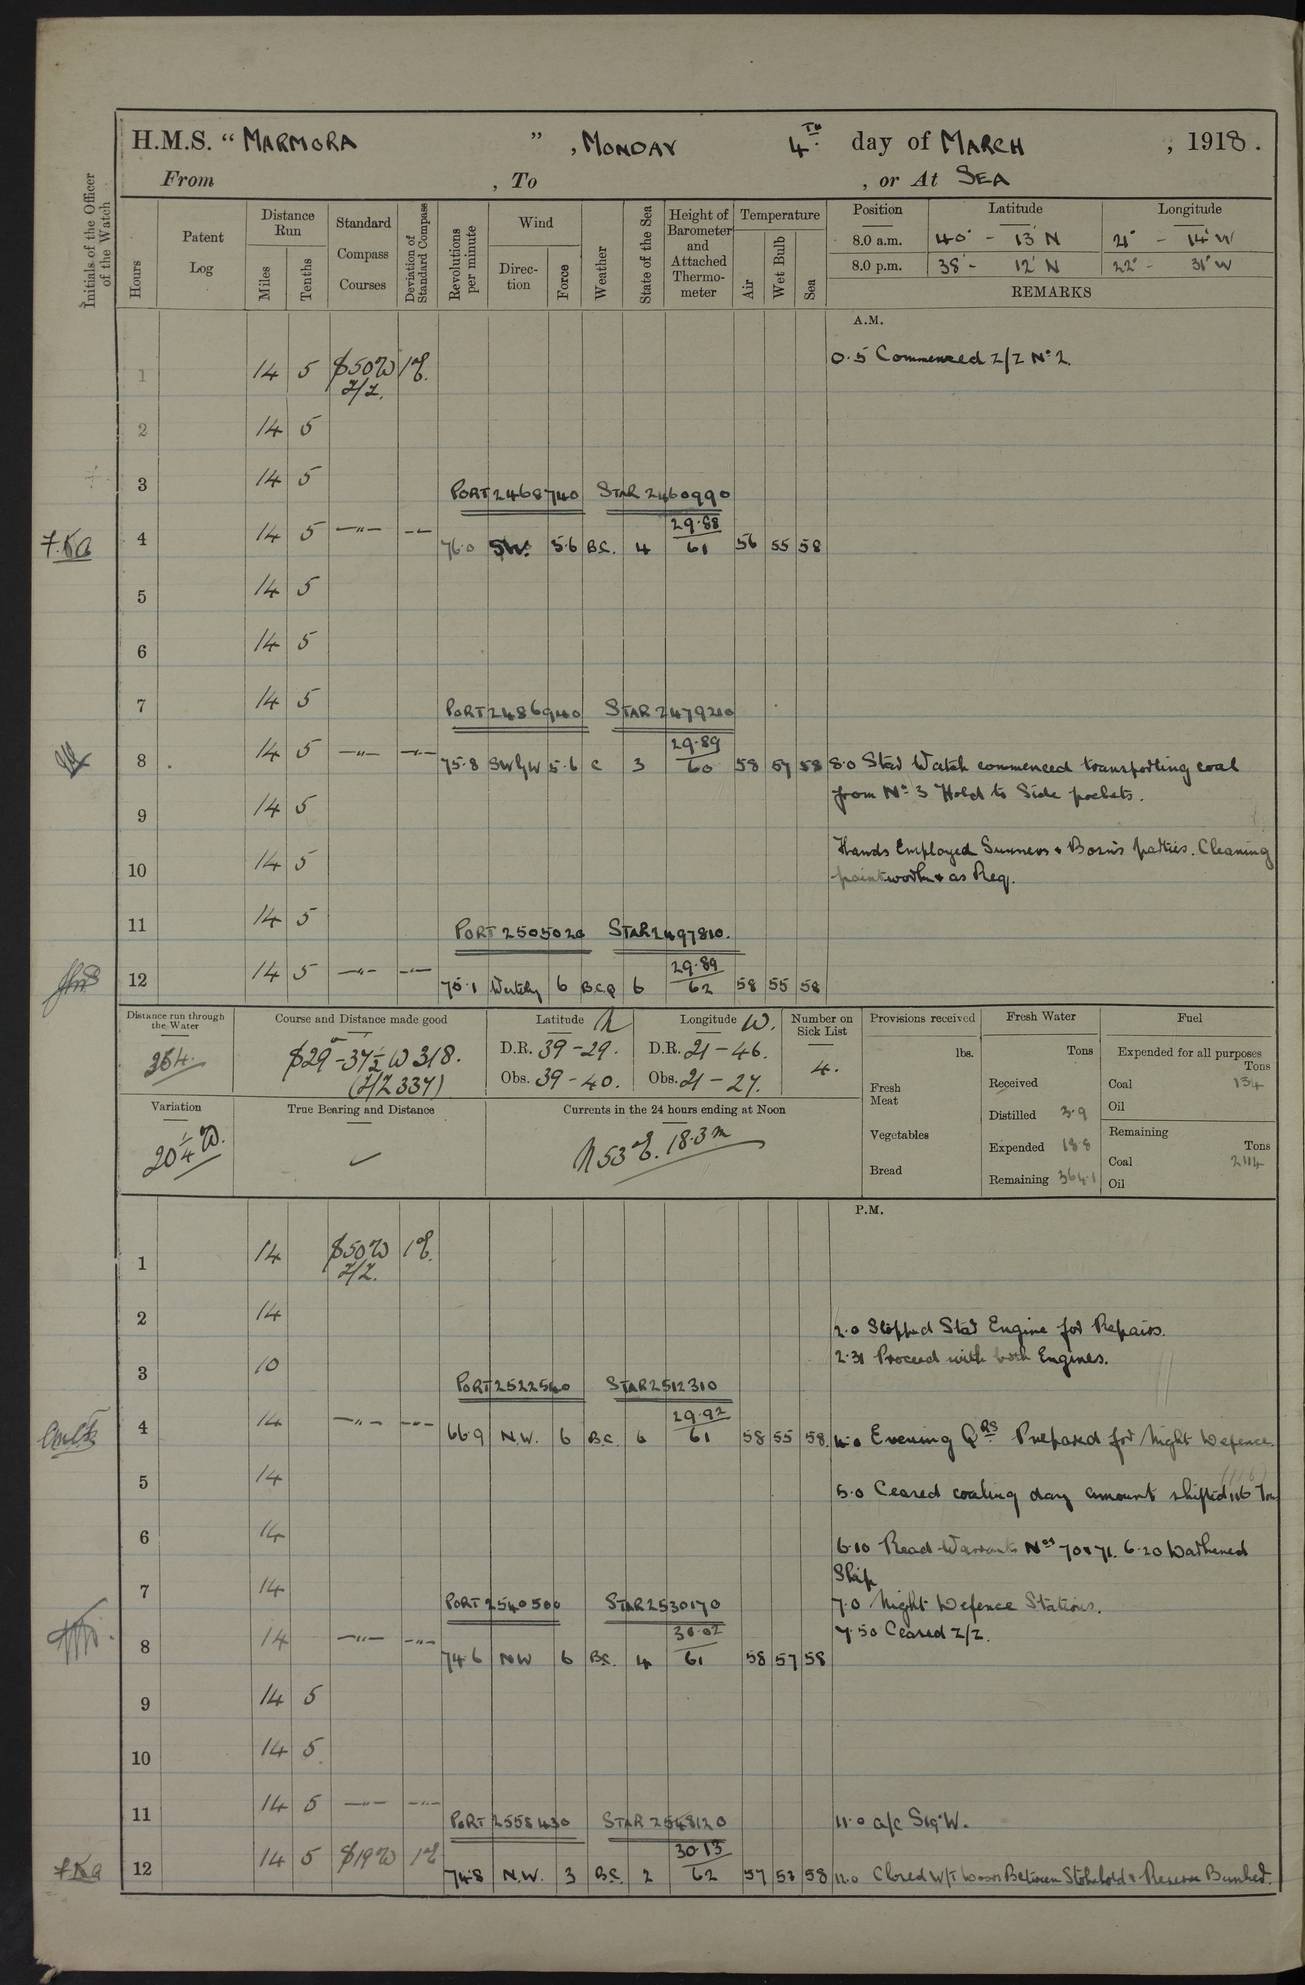 H.M.S. "MARMORA", MONDAY 4TH. day of MARCH, 1918.
From , To , or At SEA
Initials of the Officer of the Watch
Hours Patent Log Distance Run Miles Tenths Standard Compass Courses Deviation of Standard Compass Revolutions per minute Wind Direction Force Weather State of the Sea Height of Barometer and Attached Thermometer Temperature Air Wet Bulb Sea
Position Latitude Longitude
8.0 a.m. 40° - 13' N 21° - 14' W
8.0 p.m. 38° - 12' N 22° - 31' W
REMARKS
A.M.
1 14 5 S50W Z/Z. 1°E. 0.5 Commenced Z/Z No 2.
2 14 5
3 14 5
PORT 2468740 STAR 2460990
4 14 5 —"— —"— 76.0 SW. 5.6 B.C. 4 29.88 61 56 55 58
5 14 5
6 14 5
7 14 5
PORT 2486940 STAR 2479210
8 14 5 —"— —"— 75.8 SWbyW 5.6 C 3 29.89 60 58 57 58 8.0 Star Watch commenced transporting coal
from No 3 Hold to Side pockets.
9 14 5
10 14 5 Hands Employed Gunners & Bosn's parties. Cleaning
paintwork & as Req.
11 14 5
PORT 2505020 STAR 2497810.
12 14 5 —"— —"— 75.1 Westerly 6 B.C.Q 6 29.89 62 58 55 58
Distance run through the Water
Course and Distance made good
S29°-37½ W 318.
(Z/Z 337)
Latitude N
D.R. 39-29.
Obs. 39-40.
Longitude W.
D.R. 21-46.
Obs. 21-27.
Number on Sick List
4.
Provisions received
lbs.
Fresh Meat
Vegetables
Bread
Fresh Water
Tons
Received
Distilled 3.9
Expended 18.8
Remaining 364.1
Fuel
Expended for all purposes
Tons
Coal 134
Oil
Remaining
Tons
Coal 2114
Oil
Variation
20¼ W.
True Bearing and Distance
Currents in the 24 hours ending at Noon
N53°E. 18.3m
P.M.
1 14 S50W Z/Z. 1°E.
2 14 2.0 Stopped Star Engine for Repairs.
3 10 2.31 Proceed with both Engines.
PORT 2522540 STAR 2512310
4 14 —"— —"— 66.9 N.W. 6 B.C. 6 29.92 61 58 55 58. 4.0 Evening QRS Prepared for Night Defence.
5 14 5.0 Ceased coaling day amount shifted 116 Tons
(116)
6 14 6.10 Read Warrants Nos 70 & 71. 6.20 Darkened
Ship
7 14 7.0 Night Defence Stations.
PORT 2540500 STAR 2530170
7.50 Ceased Z/Z.
8 14 —"— —"— 74.6 NW 6 B.C. 4 30.02 61 58 57 58
9 14 5
10 14 5
11 14 5 —"— —"— 11.0 a/c S19°W.
PORT 2558430 STAR 2548120
12 14 5 S19W 1°E 74.8 N.W. 3 B.C. 2 30.13 62 57 53 58 12.0 Closed W/T Door Between Stokehold & Reserve Bunker.